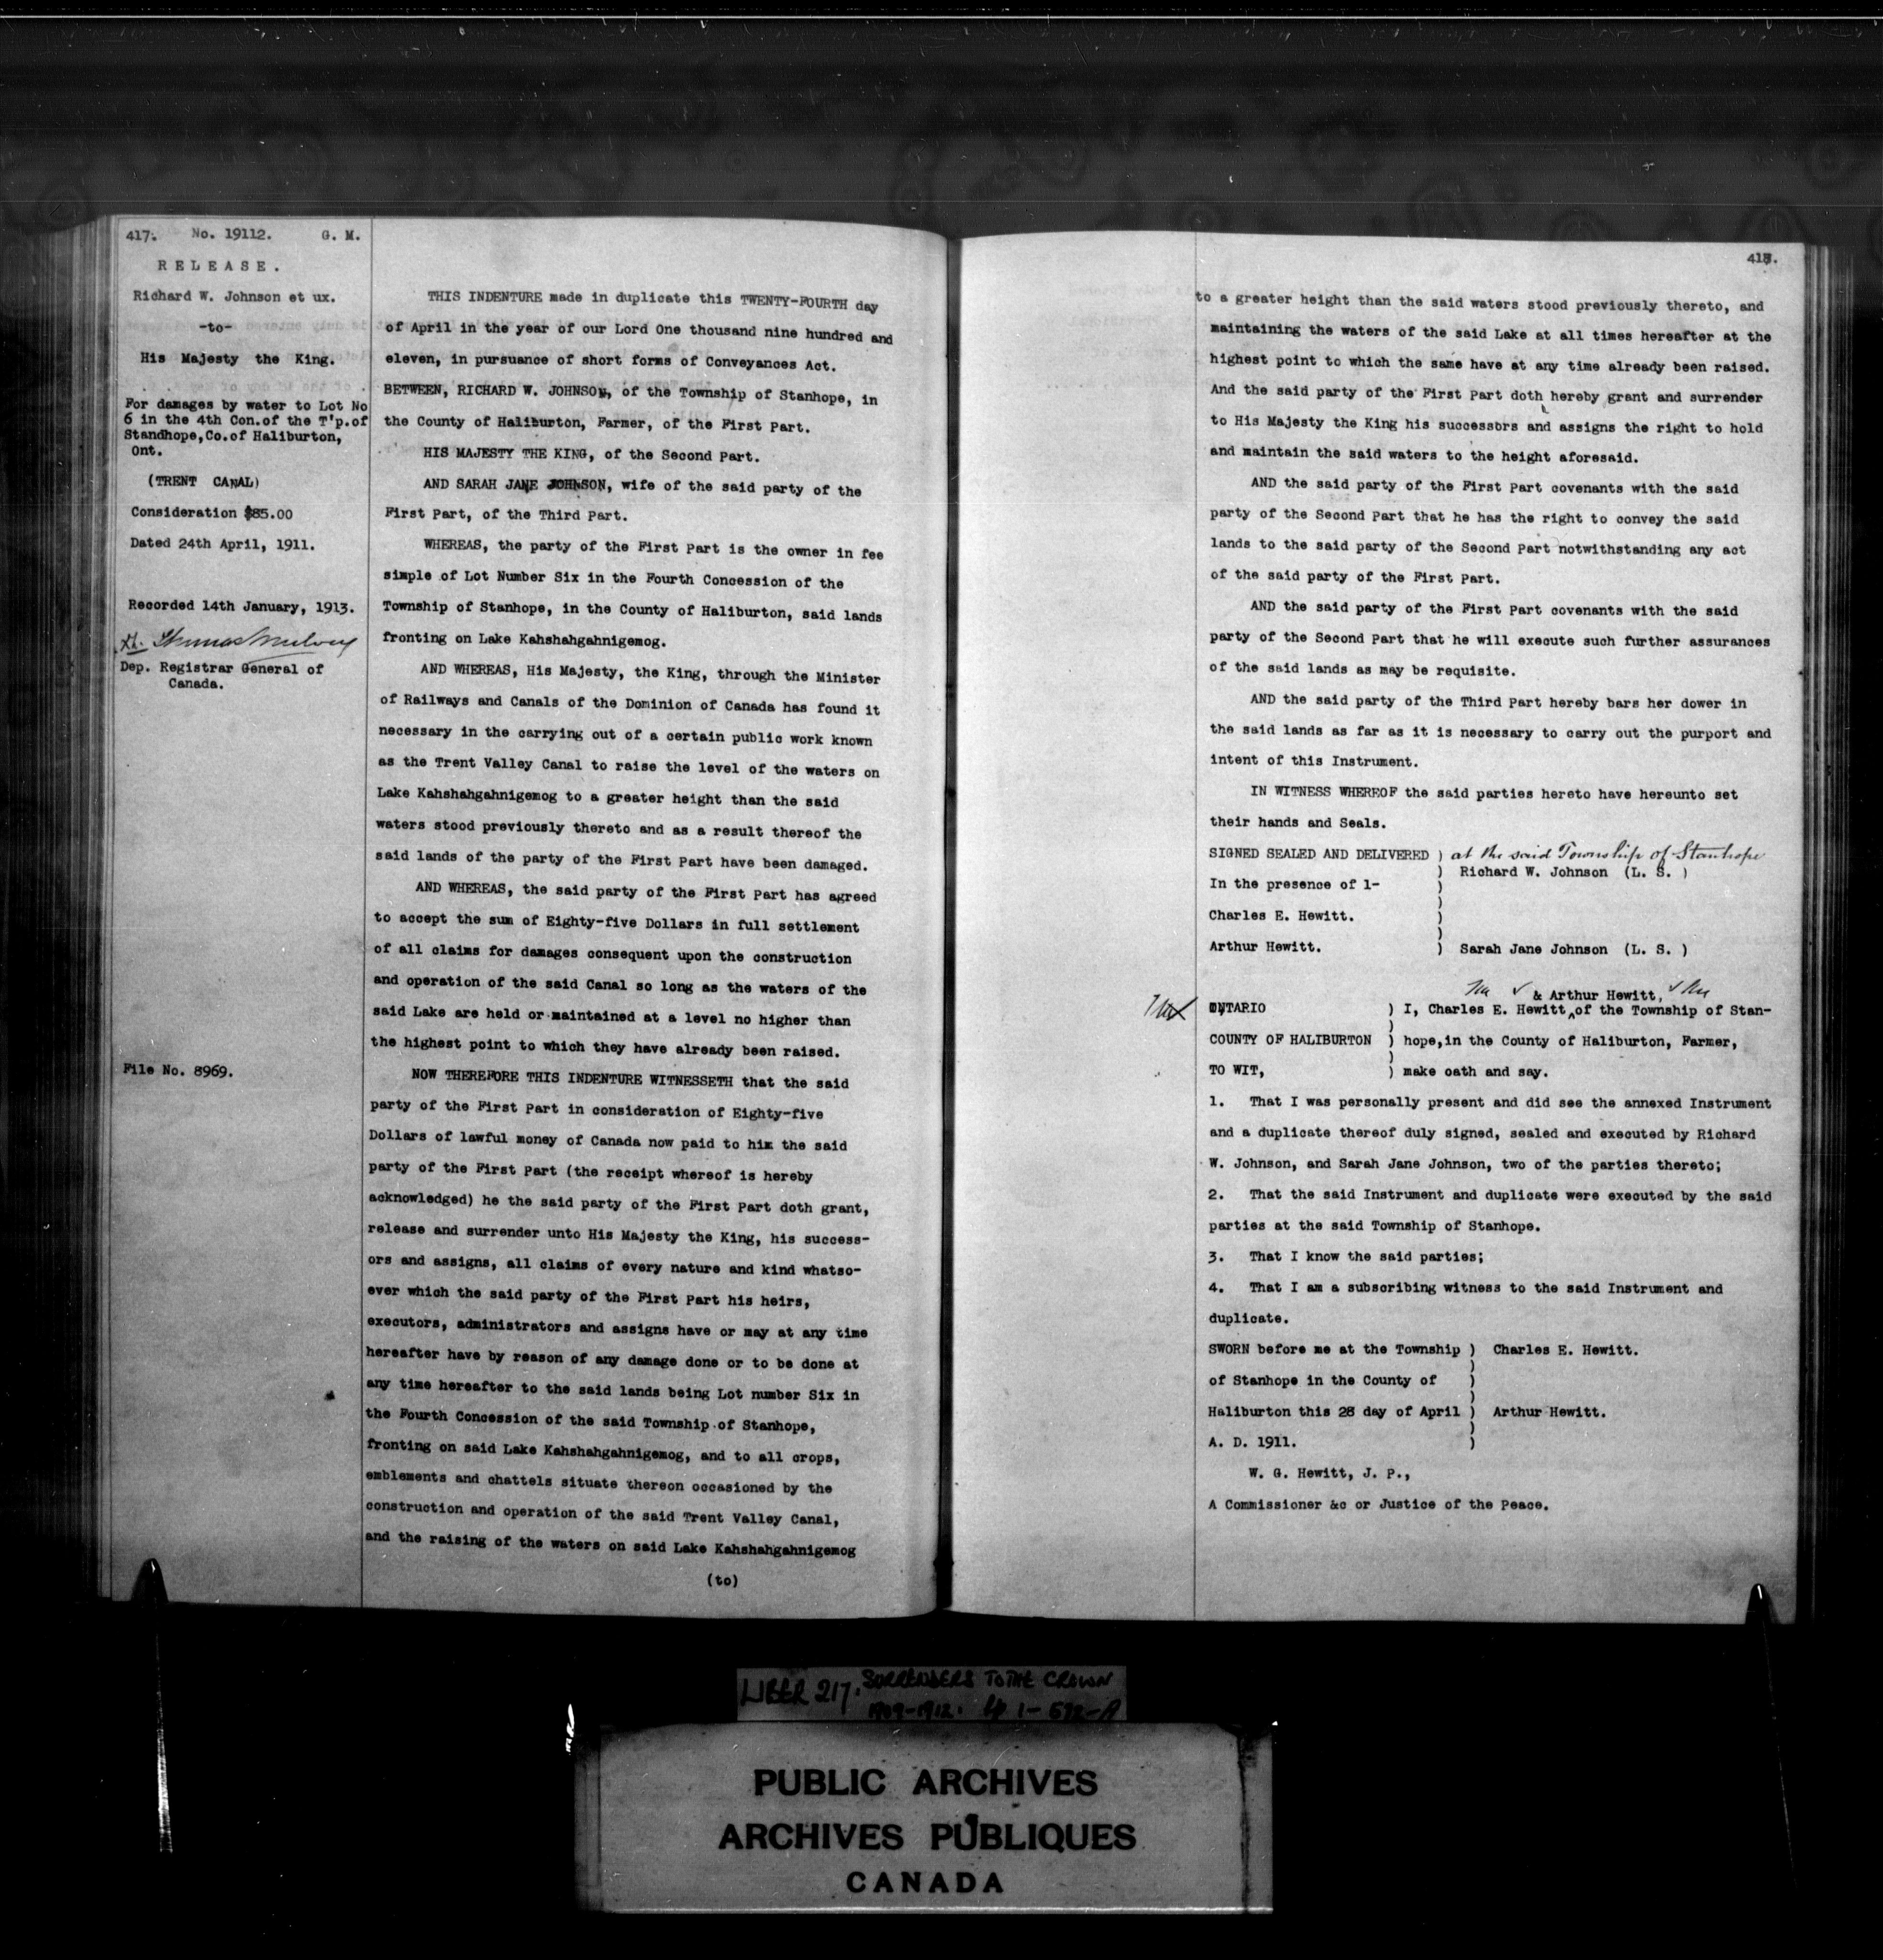 417. No. 19112. G. M.
RELEASE.
Richard W. Johnson et ux.
-to-
His Majesty the King.
For damages by water to Lot No
6 in the 4th Con.of the T'p.of
Standhope,Co.of Haliburton,
Ont.
(TRENT CANAL)
Consideration $85.00
Dated 24th April, 1911.
Recorded 14th January, 1913.
Thomas Mulvey
Dep. Registrar General of
Canada.
File No. 8969.
THIS INDENTURE made in duplicate this TWENTY-FOURTH day
of April in the year of our Lord One thousand nine hundred and
eleven, in pursuance of short forms of Conveyances Act.
BETWEEN, RICHARD W. JOHNSON, of the Township of Stanhope, in
the County of Haliburton, Farmer, of the First Part.
HIS MAJESTY THE KING, of the Second Part.
AND SARAH JANE JOHNSON, wife of the said party of the
First Part, of the Third Part.
WHEREAS, the party of the First Part is the owner in fee
simple of Lot Number Six in the Fourth Concession of the
Township of Stanhope, in the County of Haliburton, said lands
fronting on Lake Kahshahgahnigemog.
AND WHEREAS, His Majesty, the King, through the Minister
of Railways and Canals of the Dominion of Canada has found it
necessary in the carrying out of a certain public work known
as the Trent Valley Canal to raise the level of the waters on
Lake Kahshahgahnigemog to a greater height than the said
waters stood previously thereto and as a result thereof the
said lands of the party of the First Part have been damaged.
AND WHEREAS, the said party of the First Part has agreed
to accept the sum of Eighty-five Dollars in full settlement
of all claims for damages consequent upon the construction
and operation of the said Canal so long as the waters of the
said Lake are held or maintained at a level no higher than
the highest point to which they have already been raised.
NOW THEREFORE THIS INDENTURE WITNESSETH that the said
party of the First Part in consideration of Eighty-five
Dollars of lawful money of Canada now paid to him the said
party of the First Part (the receipt whereof is hereby
acknowledged) he the said party of the First Part doth grant,
release and surrender unto His Majesty the King, his success-
ors and assigns, all claims of every nature and kind whatso-
ever which the said party of the First Part his heirs,
executors, administrators and assigns have or may at any time
hereafter have by reason of any damage done or to be done at
any time hereafter to the said lands being Lot number Six in
the Fourth Concession of the said Township of Stanhope,
fronting on said Lake Kahshahgahnigemog, and to all crops,
emblements and chattels situate thereon occasioned by the
construction and operation of the said Trent Valley Canal,
and the raising of the waters on said Lake Kahshahgahnigemog
(to)
418.
to a greater height than the said waters stood previously thereto, and
maintaining the waters of the said Lake at all times hereafter at the
highest point to which the same have at any time already been raised.
And the said party of the First Part doth hereby grant and surrender
to His Majesty the King his successors and assigns the right to hold
and maintain the said waters to the height aforesaid.
AND the said party of the First Part covenants with the said
party of the Second Part that he has the right to convey the said
lands to the said party of the Second Part notwithstanding any act
of the said party of the First Part.
AND the said party of the First Part covenants with the said
party of the Second Part that he will execute such further assurances
of the said lands as may be requisite.
AND the said party of the Third Part hereby bars her dower in
the said lands as far as it is necessary to carry out the purport and
intent of this Instrument.
IN WITNESS WHEREOF the said parties hereto have hereunto set
their hands and Seals.
SIGNED SEALED AND DELIVERED ) at the said Township of Stanhope
) Richard W. Johnson (L. S. )
In the presence of 1- )
)
Charles E. Hewitt. )
)
Arthur Hewitt. ) Sarah Jane Johnson (L. S. )
& Arthur Hewitt,
ONTARIO ) I, Charles E. Hewitt ^of the Township of Stan-
)
COUNTY OF HALIBURTON ) hope,in the County of Haliburton, Farmer,
)
TO WIT, ) make oath and say.
1. That I was personally present and did see the annexed Instrument
and a duplicate thereof duly signed, sealed and executed by Richard
W. Johnson, and Sarah Jane Johnson, two of the parties thereto;
2. That the said Instrument and duplicate were executed by the said
parties at the said Township of Stanhope.
3. That I know the said parties;
4. That I am a subscribing witness to the said Instrument and
duplicate.
SWORN before me at the Township ) Charles E. Hewitt.
)
of Stanhope in the County of )
)
Haliburton this 28 day of April ) Arthur Hewitt.
)
A. D. 1911. )
W. G. Hewitt, J. P.,
A Commissioner &c or Justice of the Peace.
LIBER 217. SURRENDERS TO THE CROWN
1909-1912. 1-592-A
PUBLIC ARCHIVES
ARCHIVES PUBLIQUES
CANADA